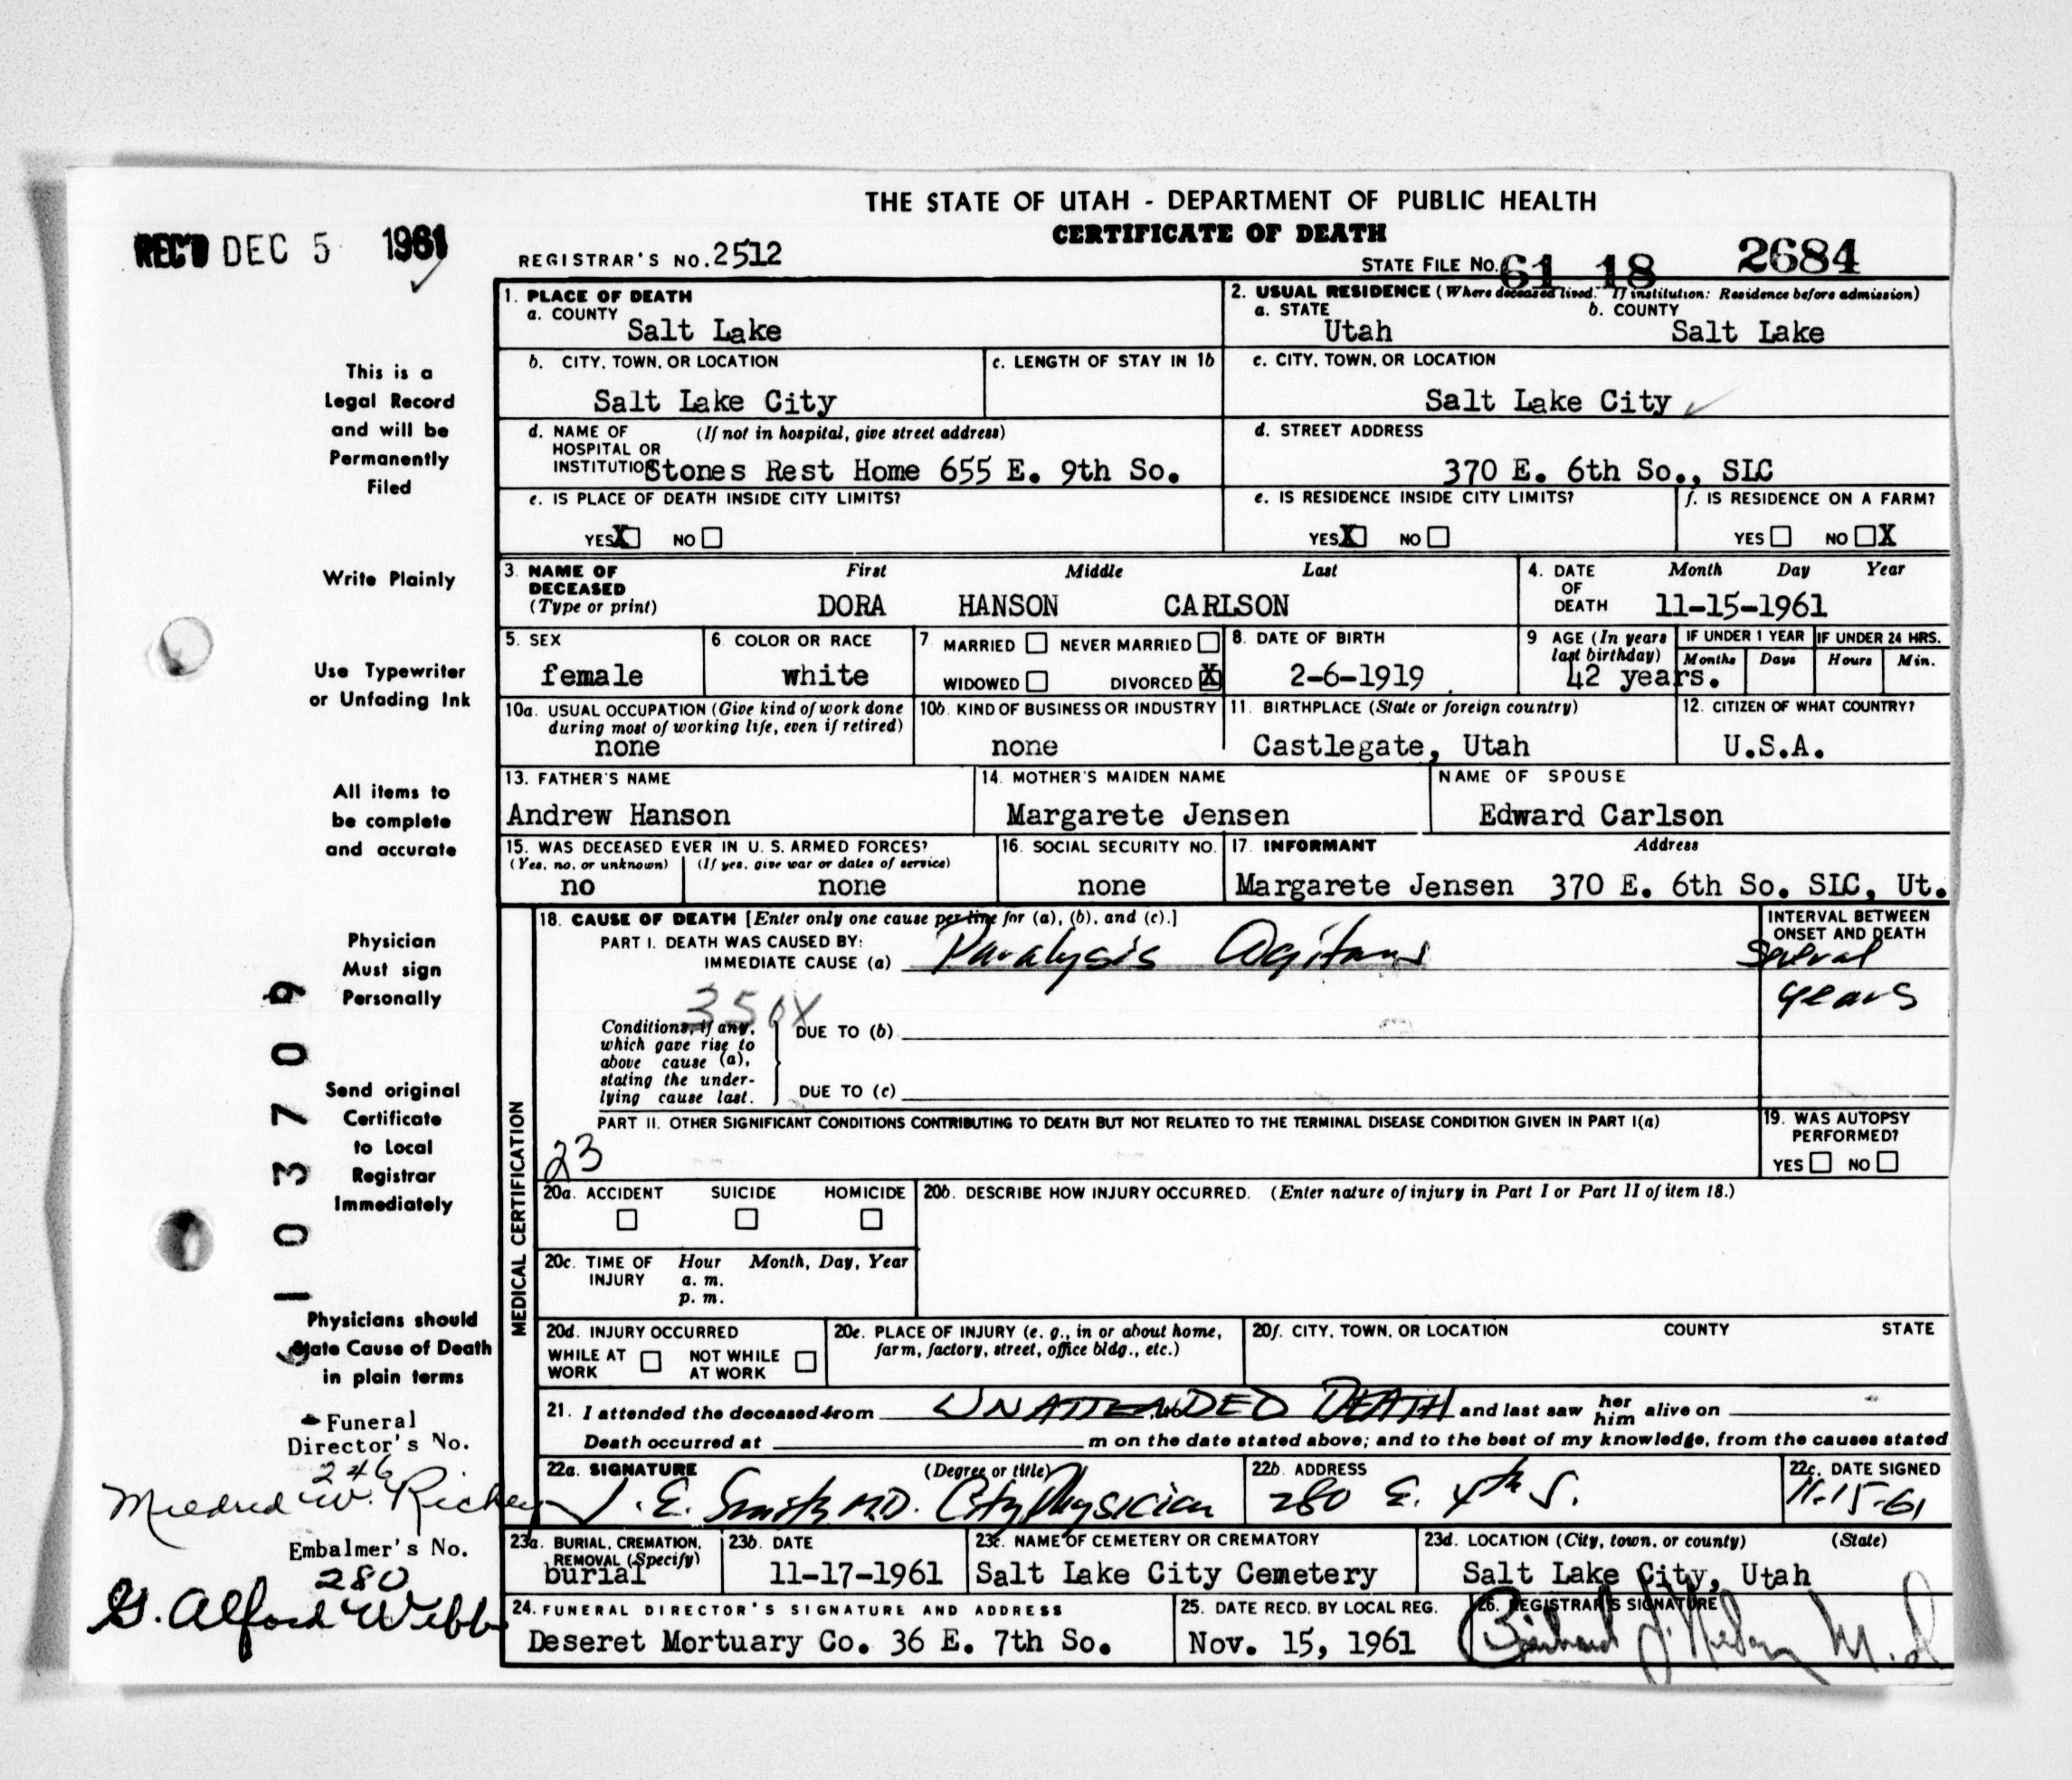 THE STATE OF UTAH - DEPARTMENT OF PUBLIC HEALTH
CERTIFICATE OF DEATH
REC'D DEC 5 1961
REGISTRAR'S NO. 2512
STATE FILE NO. 61 18 2684
1. PLACE OF DEATH
a. COUNTY
Salt Lake
2. USUAL RESIDENCE (Where deceased lived. If institution: Residence before admission)
a. STATE b. COUNTY
Utah Salt Lake
b. CITY, TOWN, OR LOCATION
Salt Lake City
c. LENGTH OF STAY IN 1b
c. CITY, TOWN, OR LOCATION
Salt Lake City
d. NAME OF (If not in hospital, give street address)
HOSPITAL OR
INSTITUTION Stones Rest Home 655 E. 9th So.
d. STREET ADDRESS
370 E. 6th So., SLC
e. IS PLACE OF DEATH INSIDE CITY LIMITS?
YES X NO
e. IS RESIDENCE INSIDE CITY LIMITS?
YES X NO
f. IS RESIDENCE ON A FARM?
YES NO X
3. NAME OF DECEASED (Type or print)
First Middle Last
DORA HANSON CARLSON
4. DATE OF DEATH
Month Day Year
11-15-1961
5. SEX
female
6. COLOR OR RACE
white
7. MARRIED NEVER MARRIED
WIDOWED DIVORCED X
8. DATE OF BIRTH
2-6-1919
9 AGE (In years last birthday)
42 years.
IF UNDER 1 YEAR
Months Days
IF UNDER 24 HRS.
Hours Min.
10a. USUAL OCCUPATION (Give kind of work done
during most of working life, even if retired)
none
10b. KIND OF BUSINESS OR INDUSTRY
none
11. BIRTHPLACE (State or foreign country)
Castlegate, Utah
12. CITIZEN OF WHAT COUNTRY?
U.S.A.
13. FATHER'S NAME
Andrew Hanson
14. MOTHER'S MAIDEN NAME
Margarete Jensen
NAME OF SPOUSE
Edward Carlson
15. WAS DECEASED EVER IN U. S. ARMED FORCES?
(Yes, no, or unknown) (If yes, give war or dates of service)
no none
16. SOCIAL SECURITY NO.
none
17. INFORMANT Address
Margarete Jensen 370 E. 6th So. SLC, Ut.
MEDICAL CERTIFICATION
18. CAUSE OF DEATH [Enter only one cause per line for (a), (b), and (c).]
PART I. DEATH WAS CAUSED BY:
IMMEDIATE CAUSE (a) Paralysis Agitans
INTERVAL BETWEEN
ONSET AND DEATH
Several
years
350X
Conditions, if any,
which gave rise to
above cause (a),
stating the under-
lying cause last.
DUE TO (b)
DUE TO (c)
PART II. OTHER SIGNIFICANT CONDITIONS CONTRIBUTING TO DEATH BUT NOT RELATED TO THE TERMINAL DISEASE CONDITION GIVEN IN PART I(a)
23
19. WAS AUTOPSY
PERFORMED?
YES NO
20a. ACCIDENT SUICIDE HOMICIDE
20b. DESCRIBE HOW INJURY OCCURRED. (Enter nature of injury in Part I or Part II of item 18.)
20c. TIME OF INJURY Hour Month, Day, Year
a. m.
p. m.
20d. INJURY OCCURRED
WHILE AT WORK NOT WHILE AT WORK
20e. PLACE OF INJURY (e. g., in or about home,
farm, factory, street, office bldg., etc.)
20f. CITY, TOWN, OR LOCATION COUNTY STATE
21. I attended the deceased from UNATTENDED DEATH and last saw her him alive on
Death occurred at m on the date stated above; and to the best of my knowledge, from the causes stated
22a. SIGNATURE (Degree or title)
J. E. Smith M.D. City Physician
22b. ADDRESS
280 E. 4th S.
22c. DATE SIGNED
11-15-61
23a. BURIAL, CREMATION,
REMOVAL (Specify)
burial
23b. DATE
11-17-1961
23c. NAME OF CEMETERY OR CREMATORY
Salt Lake City Cemetery
23d. LOCATION (City, town, or county) (State)
Salt Lake City, Utah
24. FUNERAL DIRECTOR'S SIGNATURE AND ADDRESS
Deseret Mortuary Co. 36 E. 7th So.
25. DATE RECD. BY LOCAL REG.
Nov. 15, 1961
26. REGISTRAR'S SIGNATURE
This is a
Legal Record
and will be
Permanently
Filed
Write Plainly
Use Typewriter
or Unfading Ink
All items to
be complete
and accurate
Physician
Must sign
Personally
Send original
Certificate
to Local
Registrar
Immediately
Physicians should
State Cause of Death
in plain terms
6103709
Funeral
Director's No.
246
Mildred W. Rickey
Embalmer's No.
280
G. Alford Webb